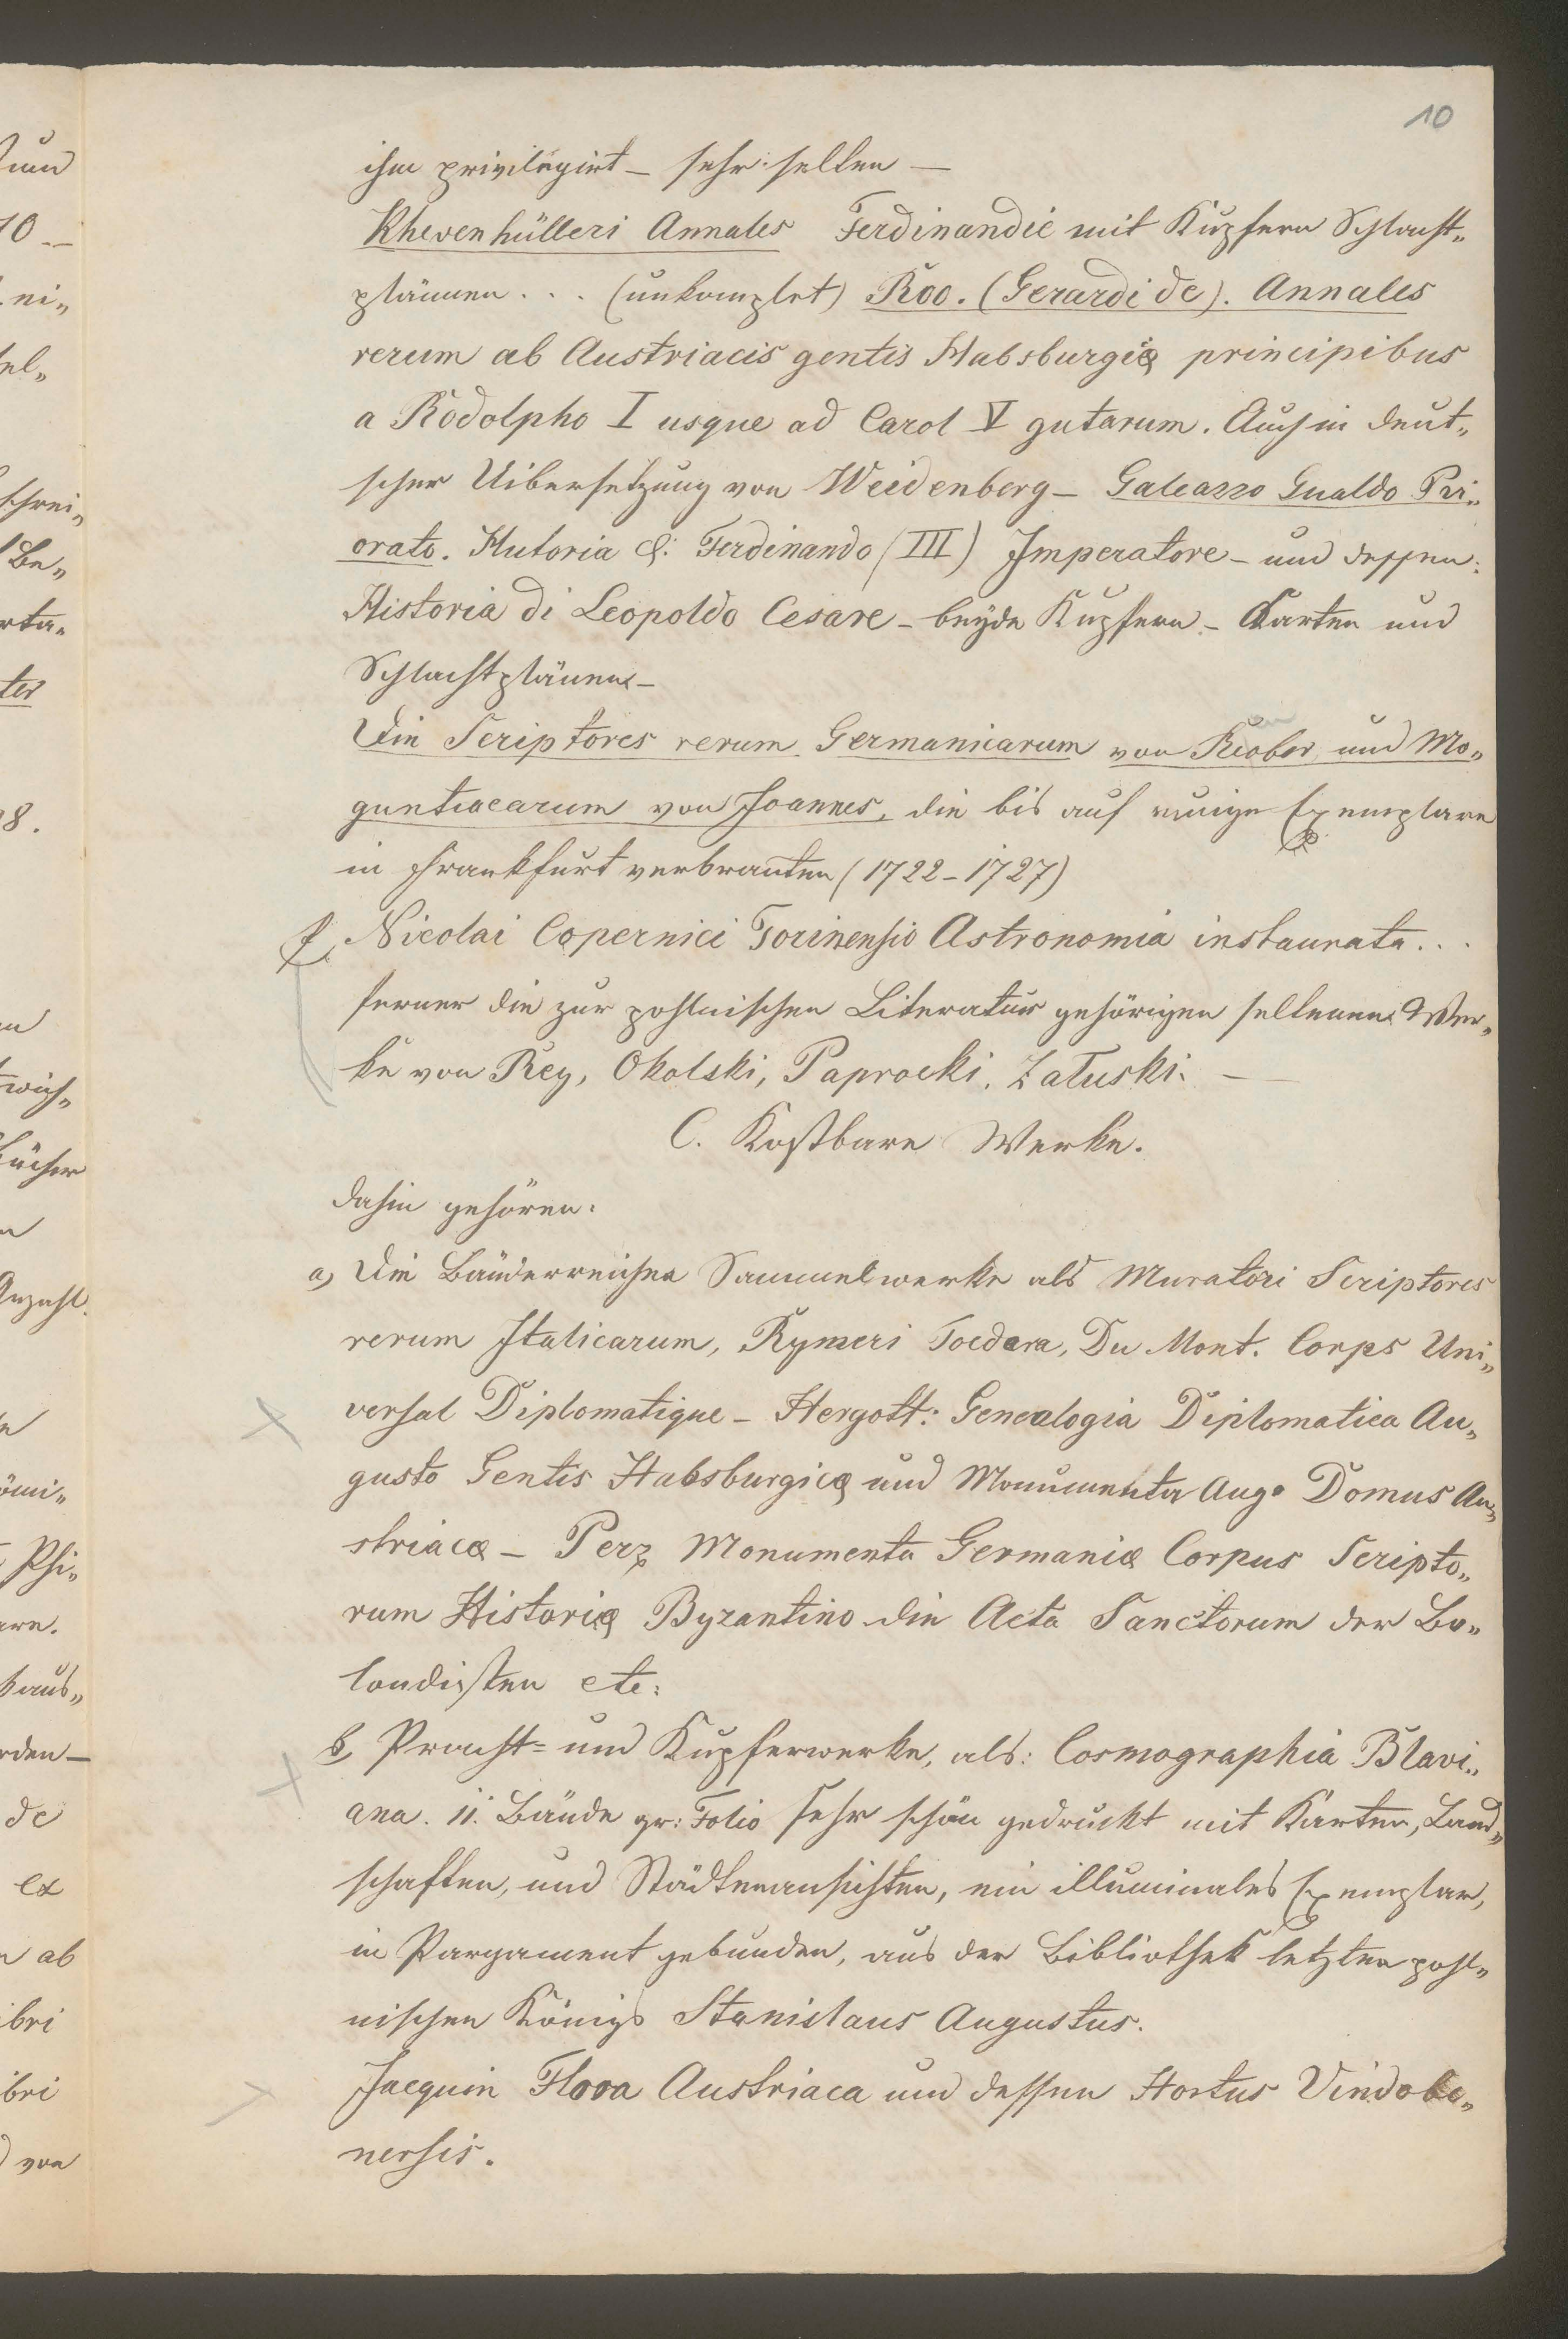 10
ihm privilegirt – sehr selten –
Khevenhülleri Annales Ferdinandie mit Kupfern Schlacht„
plännen . . . (unkomplet) Roo. (Gerardi de). Annales
rerum ab Austriacis gentis Habsburgiæ principibus
a Rodolpho I usque ad Carol V gutarum. Auch in deut„
scher Uibersetzung von Weidenberg – Galeazzo Gualdo Pri„
orato. Hutoria di: Ferdinando (III) Imperatore – und dessen:
Historia di Leopoldo Cesare – beyde Kupfern – Karten und
Schlachtplänen –
Die Scriptores rerum Germanicarum von und Mo„
guntiacarum von Joannes, die bis auf einige Exemplare
in Frankfurt verbranten (1722–1727)
f, Nicolai Copernici Torinensio Astronomia instaurata . . .
ferner die zur pohlnischen Literatur gehörigen seltenen Wer„
ke von Rey, Okolski, Paprocki, Załuski. –
C. Kostbare Werke.
dahin gehören:
a, Die Bänderreichen Sammelwerke als Muratori Scriptores
rerum Italicarum, Rymeri Foedara, Du Mont. Corps Uni„
versal Diplomatique – Hergott: Genealogia Diplomatica Au„
gusto Gentis Habsburgicæ und Monumenta Aug. Domus Au„
striacæ – Perz Monumenta Germaniæ Corpus Scripto„
rum Historiæ Byzantino die Acta Sanctorum der Bo„
londisten etc:
b, Pracht= und Kupferwerke, als: Cosmographia Blavi„
ana. 11. Bände gr: Folio sehr schön gedruckt mit Karten, Land„
schaften, und Städtenansichten, ein illuminales Exemplar,
in Pargament gebunden, aus der Bibliothek letzten pohl„
nischen Königs Stanislaus Augustus.
Jacquin Flora Austriaca und dessen Hortus Vindobo„
nensis.